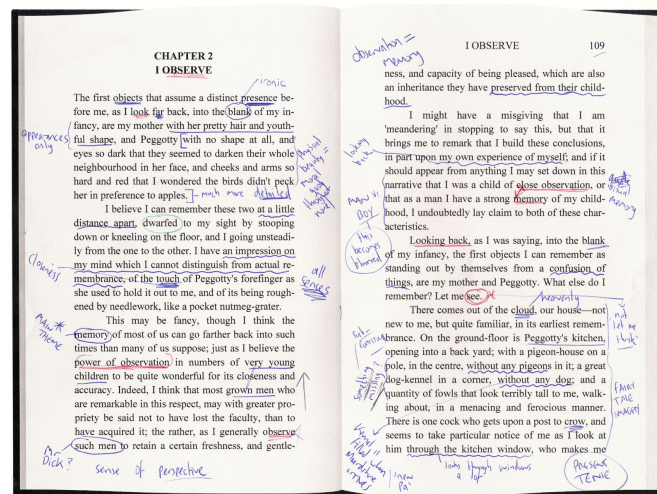 CHAPTER 2
I OBSERVE
ironic
The first objects that assume a distinct presence be-
fore me, as I look far back, into the blank of my in-
fancy, are my mother with her pretty hair and youth-
ful shape, and Peggotty with no shape at all, and
eyes so dark that they seemed to darken their whole
neighbourhood in her face, and cheeks and arms so
hard and red that I wondered the birds didn't peck
her in preference to apples.
much more detailed
appearances
only
physical
beauty =
I believe I can remember these two at a little
distance apart, dwarfed to my sight by stooping
down or kneeling on the floor, and I going unsteadi-
ly from the one to the other. I have an impression on
my mind which I cannot distinguish from actual re-
membrance, of the touch of Peggotty's forefinger as
she used to hold it out to me, and of its being rough-
ened by needlework, like a pocket nutmeg-grater.
closeness
all
senses
This may be fancy, though I think the
memory of most of us can go farther back into such
times than many of us suppose; just as I believe the
power of observation in numbers of very young
children to be quite wonderful for its closeness and
accuracy. Indeed, I think that most grown men who
are remarkable in this respect, may with greater pro-
priety be said not to have lost the faculty, than to
have acquired it; the rather, as I generally observe
such men to retain a certain freshness, and gentle-
MAIN
THEME
Mr
Dick?
sense of perspective
observation =
memory
I OBSERVE
109
ness, and capacity of being pleased, which are also
an inheritance they have preserved from their child-
hood.
I might have a misgiving that I am
'meandering' in stopping to say this, but that it
brings me to remark that I build these conclusions,
in part upon my own experience of myself; and if it
should appear from anything I may set down in this
narrative that I was a child of close observation, or
that as a man I have a strong memory of my child-
hood, I undoubtedly lay claim to both of these char-
acteristics.
looking
back
MAN vs
BOY
this
becomes
blurred
visual
memory
Looking back, as I was saying, into the blank
of my infancy, the first objects I can remember as
standing out by themselves from a confusion of
things, are my mother and Peggotty. What else do I
remember? Let me see.
heavenly
There comes out of the cloud, our house—not
new to me, but quite familiar, in its earliest remem-
brance. On the ground-floor is Peggotty's kitchen,
opening into a back yard; with a pigeon-house on a
pole, in the centre, without any pigeons in it; a great
dog-kennel in a corner, without any dog; and a
quantity of fowls that look terribly tall to me, walk-
ing about, in a menacing and ferocious manner.
There is one cock who gets upon a post to crow, and
seems to take particular notice of me as I look at
him through the kitchen window, who makes me
not
let me
think
something
missing
FAIRY
TALE
IMAGERY
kennel is
filled when
Murdstone
arrives
looks through windows
a lot
PRESENT
TENSE